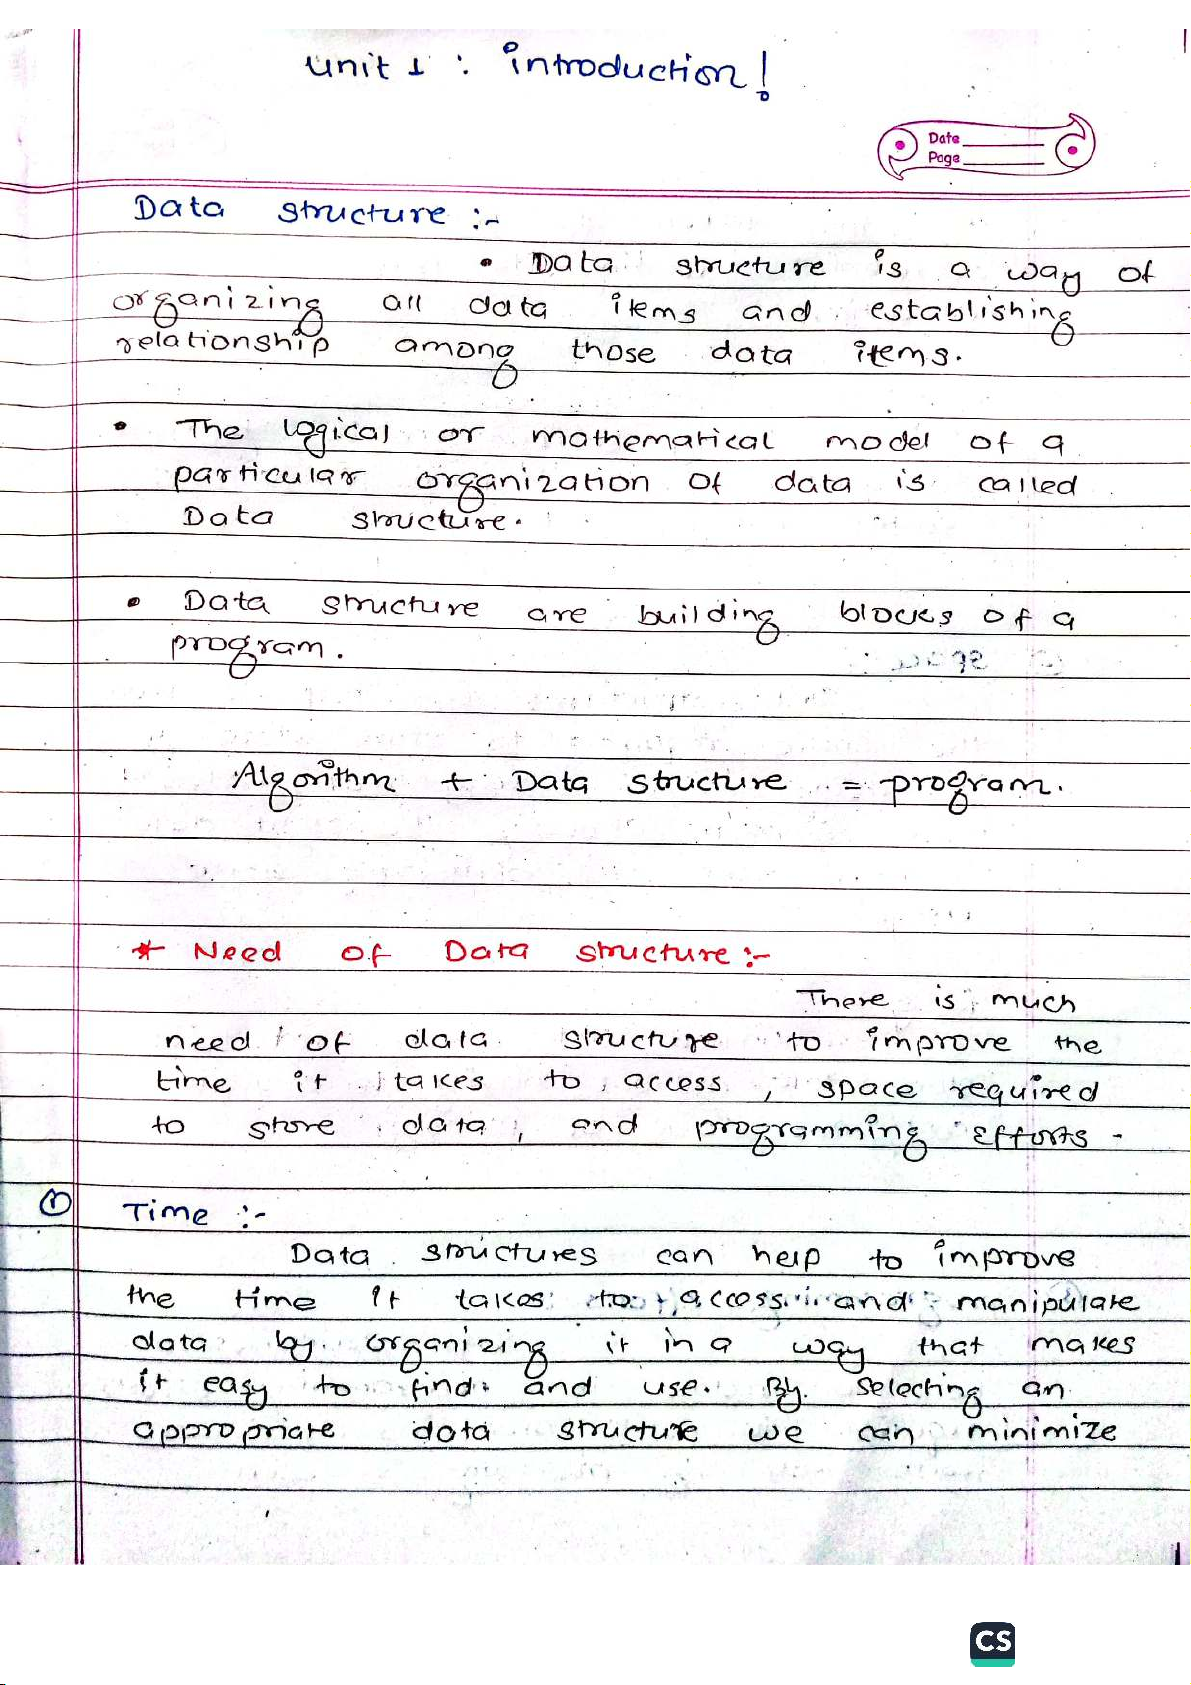 Unit 1 : introduction!
Date
Page
Data structure :-
• Data structure is a way of
organizing all data items and establishing
relationship among those data items.
• The logical or mathematical model of a
particular organization of data is called
Data structure.
• Data structure are building blocks of a
program.
Algorithm + Data structure = program.
* Need of Data structure :-
There is much
need of data structure to improve the
time it takes to access, space required
to store data, and programming efforts.
① Time :-
Data structures can help to improve
the time it takes to access and manipulate
data by organizing it in a way that makes
it easy to find and use. By selecting an
appropriate data structure we can minimize
CS